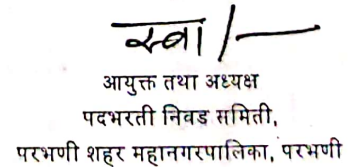 स्वा/-
आयुक्त तथा अध्यक्ष
पदभरती निवड समिती,
परभणी शहर महानगरपालिका, परभणी